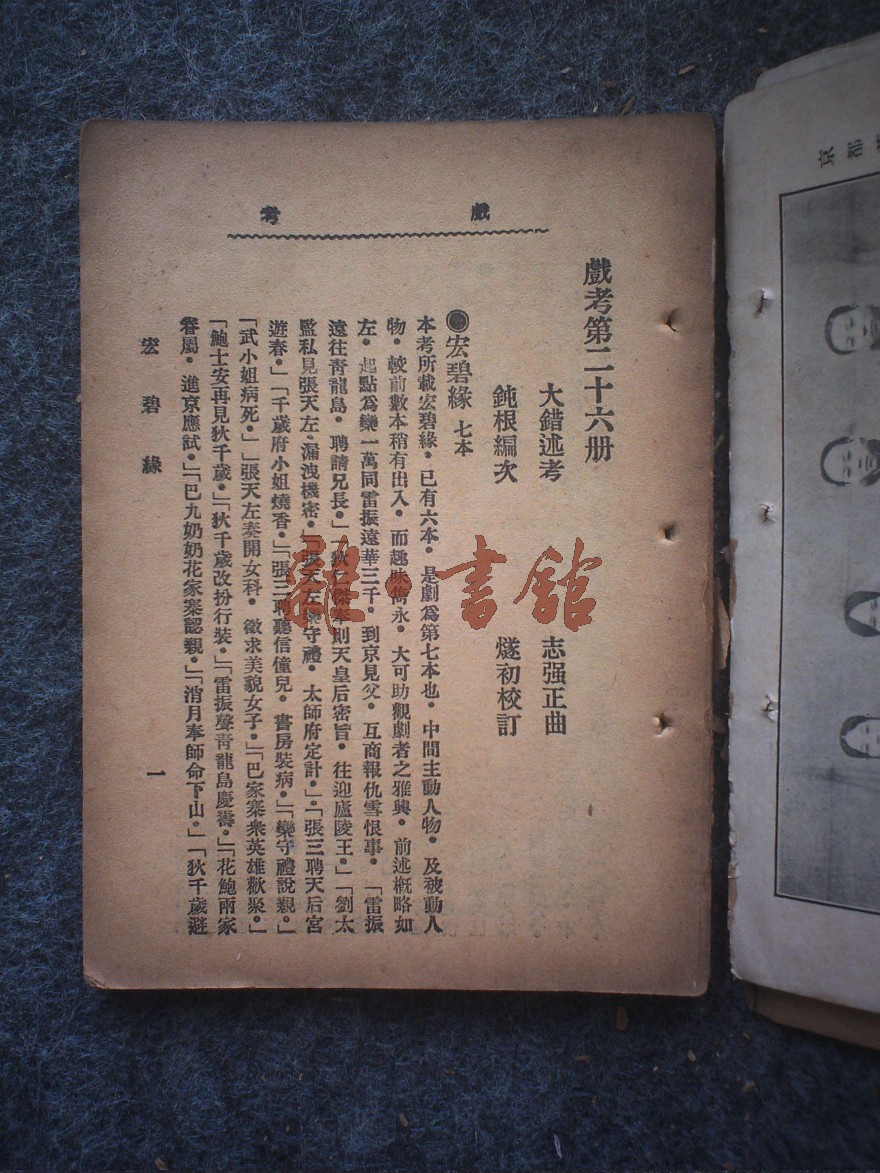 戲考
戲考第二十六册
大錯述考 志强正曲
鈍根編次 燧初校訂
●宏碧緣 七本
本考所載宏碧緣．已有六本．是劇爲第七本也．中間主動人物．及被動人
物．較前數本稍有出入．而趣味雋永．大可助觀劇者之雅興．前述概略如
左．起點爲欒一萬同雷振遠華三千．到京見父．互商報仇雪恨事．「雷振
遠往靑龍島．聘請兄長．」「狄仁傑奉則天皇后密旨．往迎廬陵王．」「劉太
監私見張天左．漏洩機密．「張天左欒守禮．太師府定計．」．「張三聘天后宮
遊春．」「千歲府小姐燒香．」「張三聘聽信僮兒．書房裝病．」「欒守禮說親．」
「武小姐病死．」「張天左奏開女科．徵求美貌女子．」「巴家寨衆英雄歡聚．」
「鮑士安再見狄千歲．」「狄千歲改扮行裝．」「雷振聲靑龍島慶壽．」「花鮑兩家
眷屬．進京應試．」「巴九奶奶花家寨認親．」「消月奉師命下山．」「狄千歲避
宏碧緣 一
雜·書館
京都